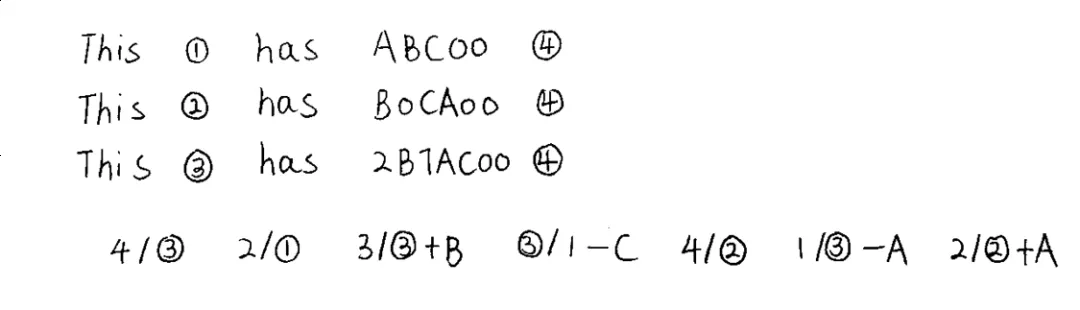 This ① has ABC00 ④
This ② has B0CA00 ④
This ③ has 2B7AC00 ④
4/③ 2/① 3/③+B ③/1-C 4/② 1/③-A 2/②+A